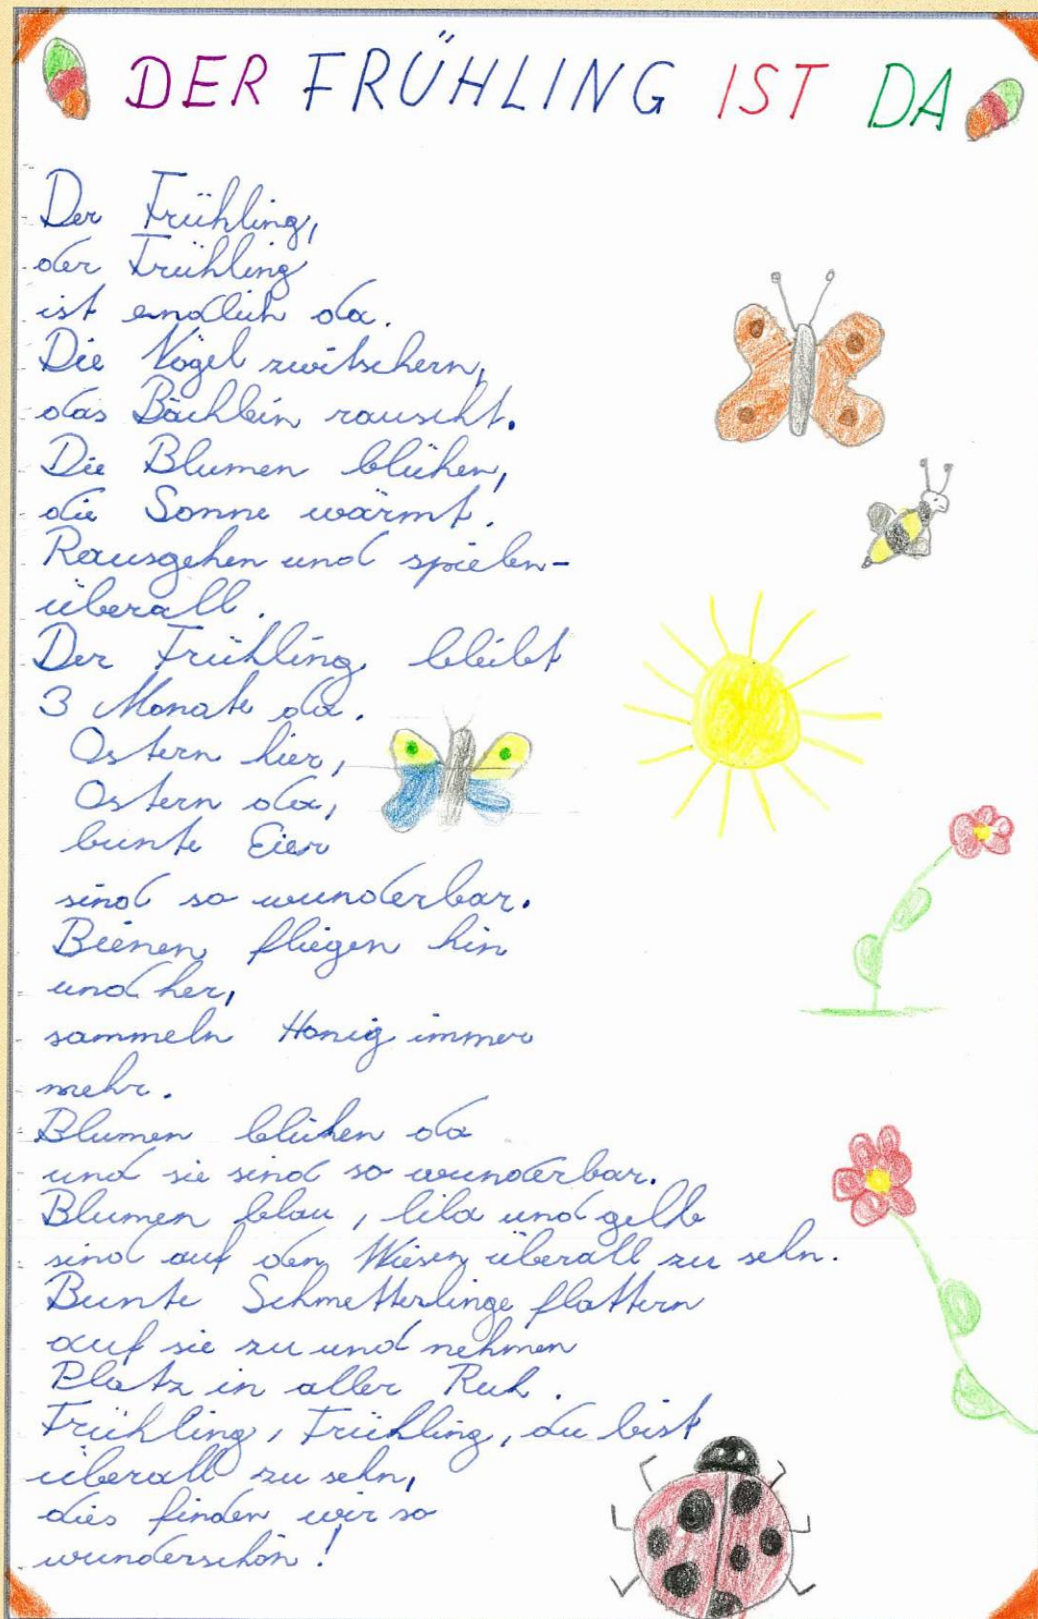 DER FRÜHLING IST DA
Der Frühling,
der Frühling
ist endlich da.
Die Vögel zwitschern,
das Bächlein rauscht.
Die Blumen blühen,
die Sonne wärmt.
Rausgehen und spielen-
überall.
Der Frühling bleibt
3 Monate da.
Ostern hier,
Ostern da,
bunte Eier
sind so wunderbar.
Bienen fliegen hin
und her,
sammeln Honig immer
mehr.
Blumen blühen da
und sie sind so wunderbar.
Blumen blau, lila und gelb
sind auf den Wiesen überall zu sehn.
Bunte Schmetterlinge flattern
auf sie zu und nehmen
Platz in aller Ruh.
Frühling, Frühling, du bist
überall zu sehn,
dies finden wir so
wunderschön!